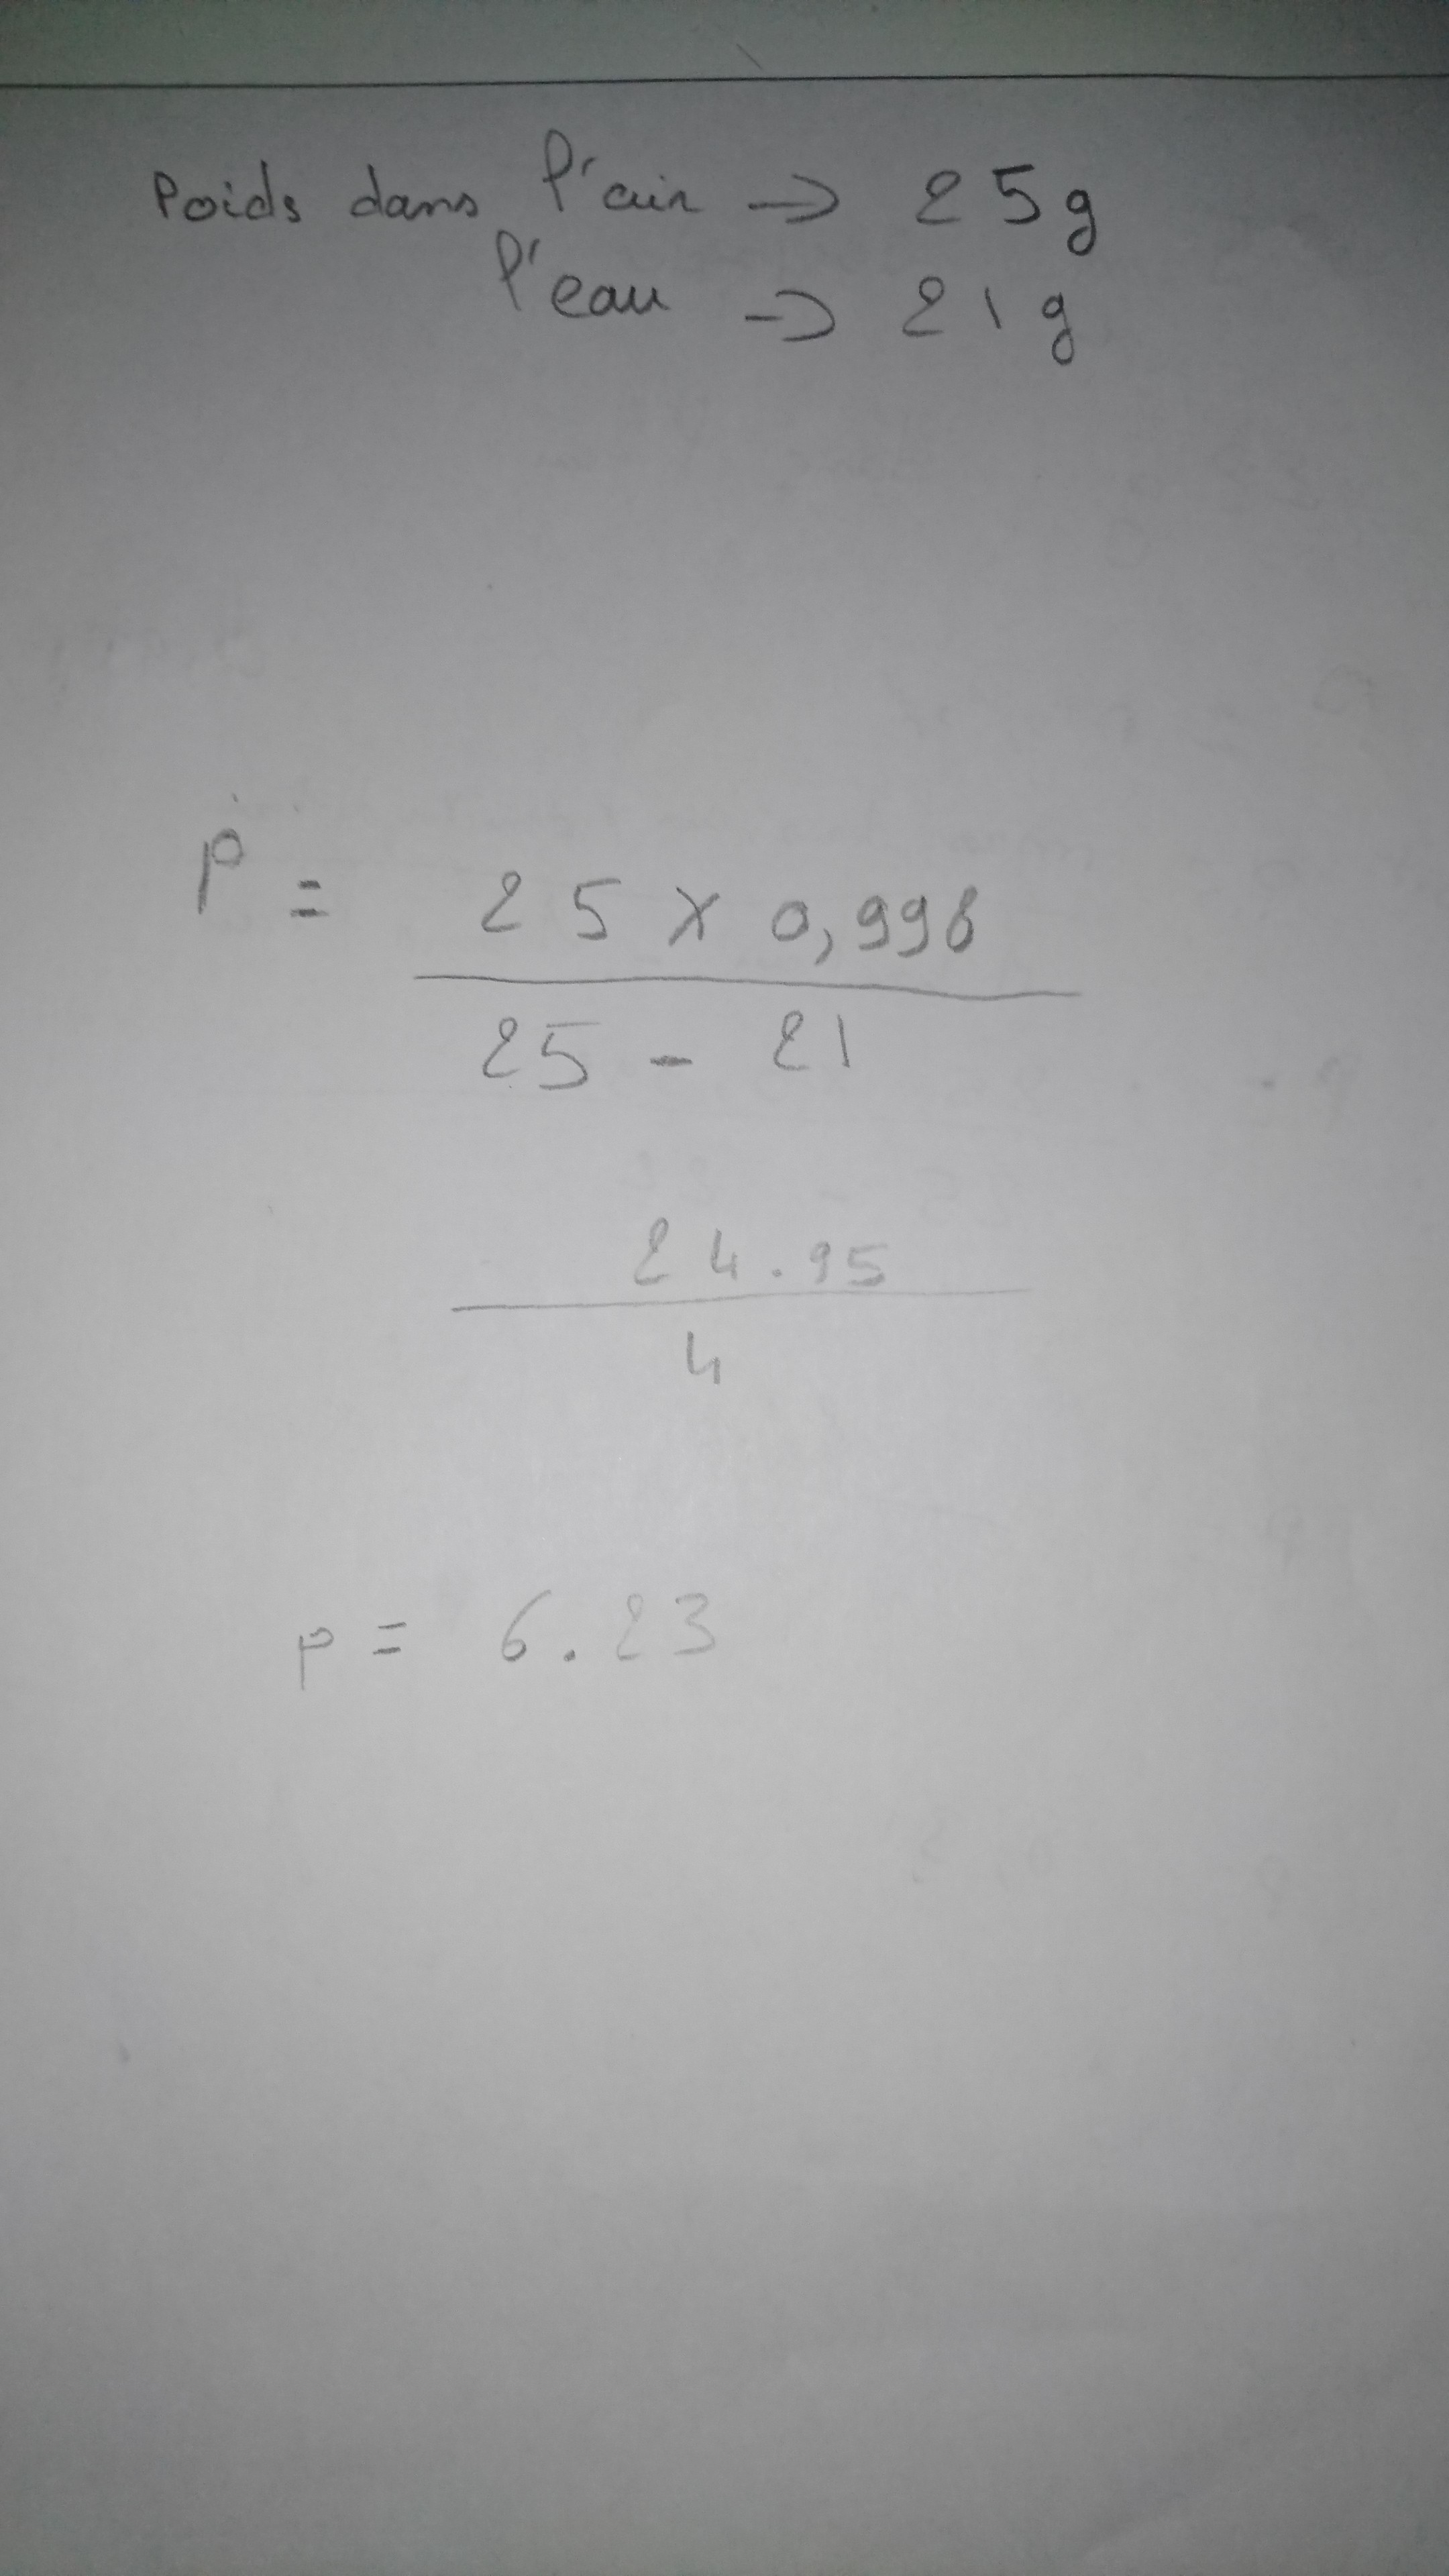 Poids dans l'air → 25g
l'eau → 21g
ρ = 25 x 0,998
25 - 21
24.95
4
ρ = 6.23